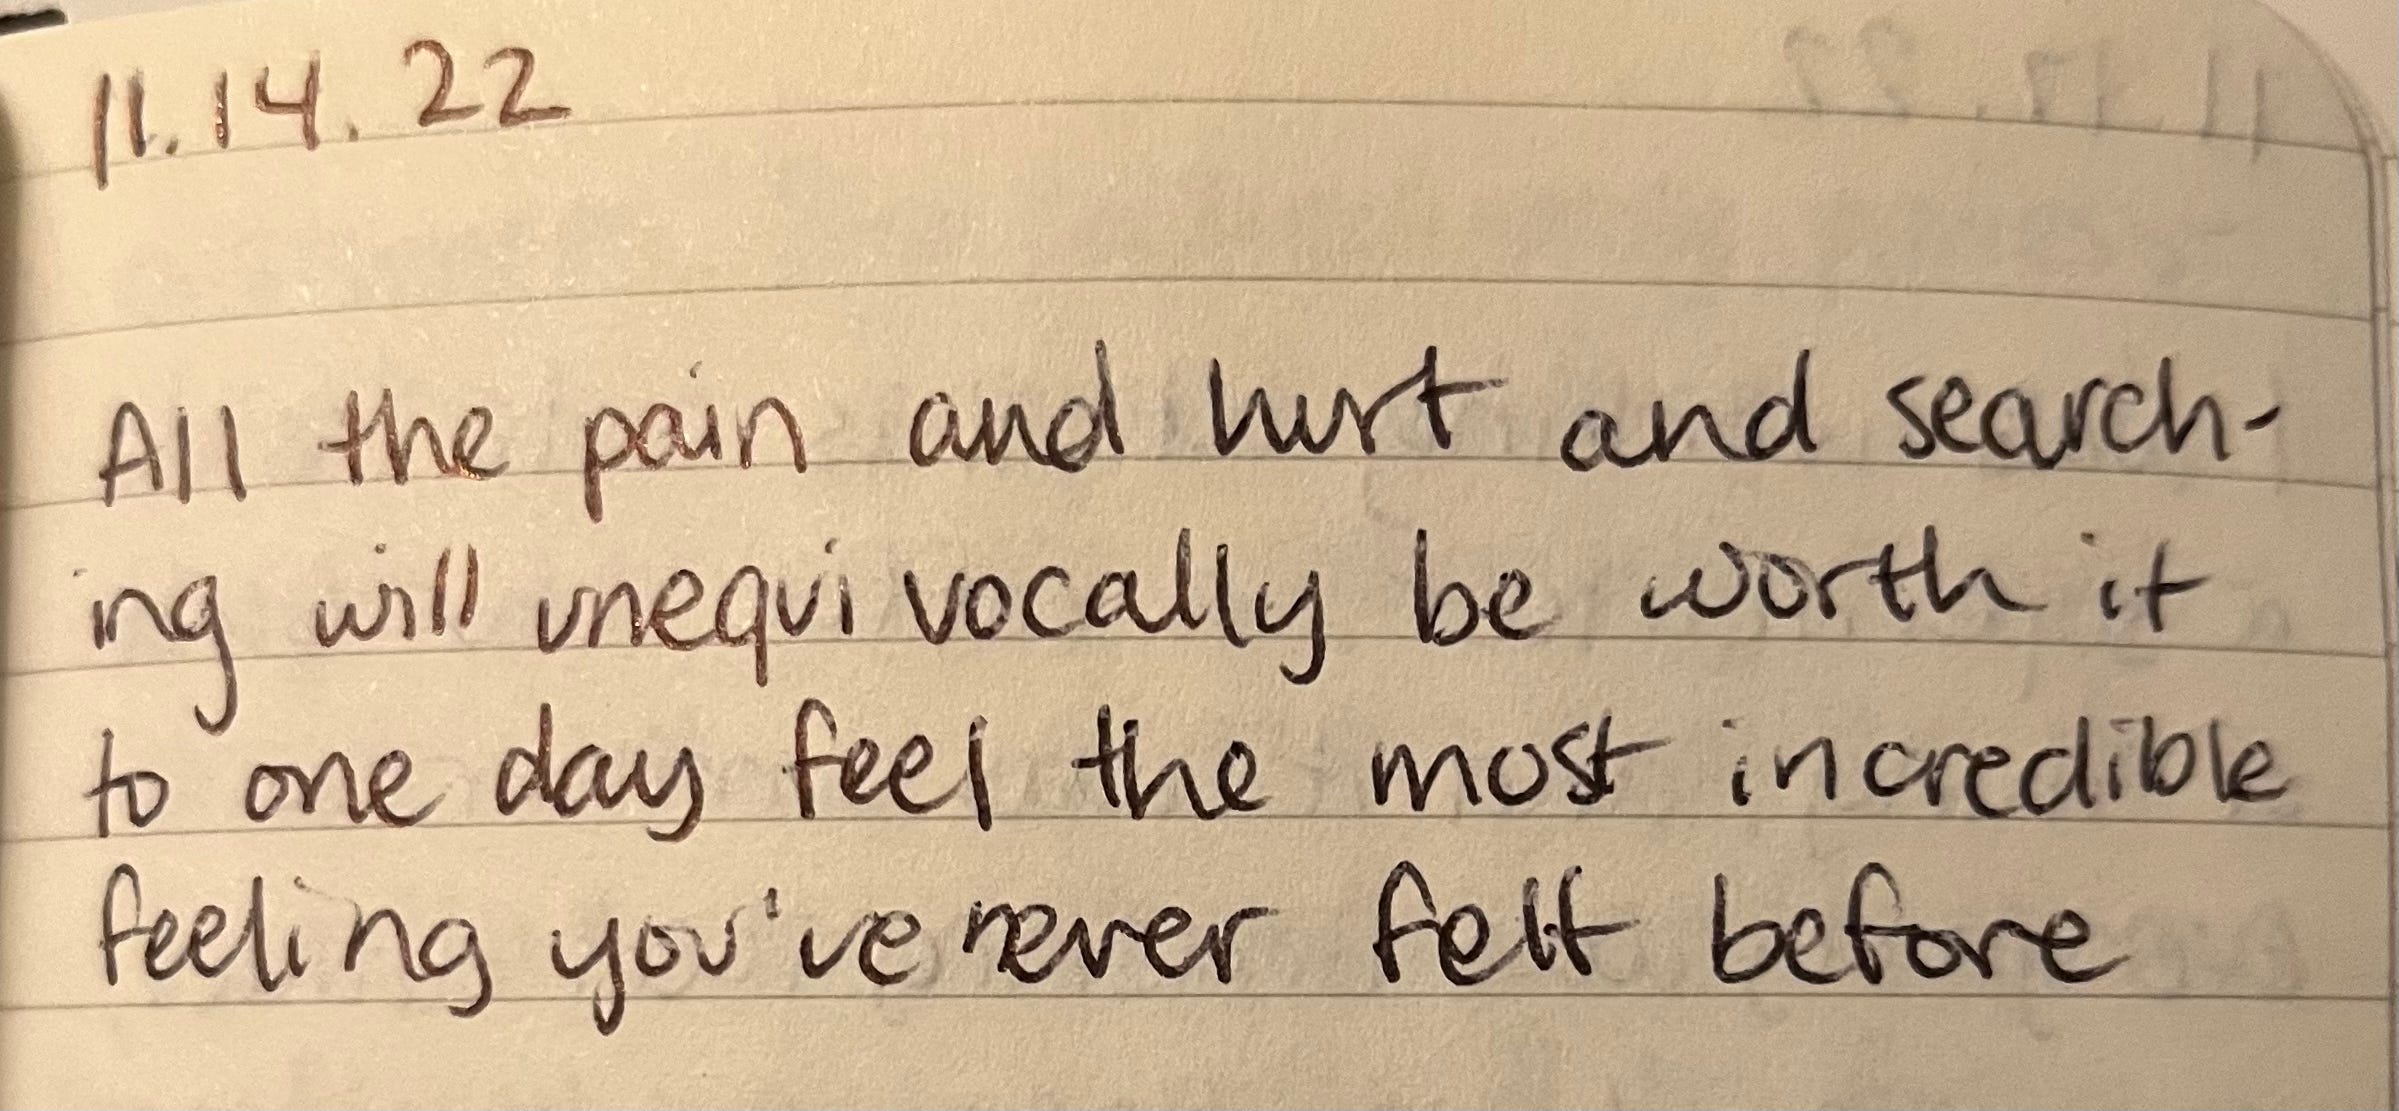 11.14.22
All the pain and hurt and search-
ing will unequivocally be worth it
to one day feel the most incredible
feeling you've never felt before